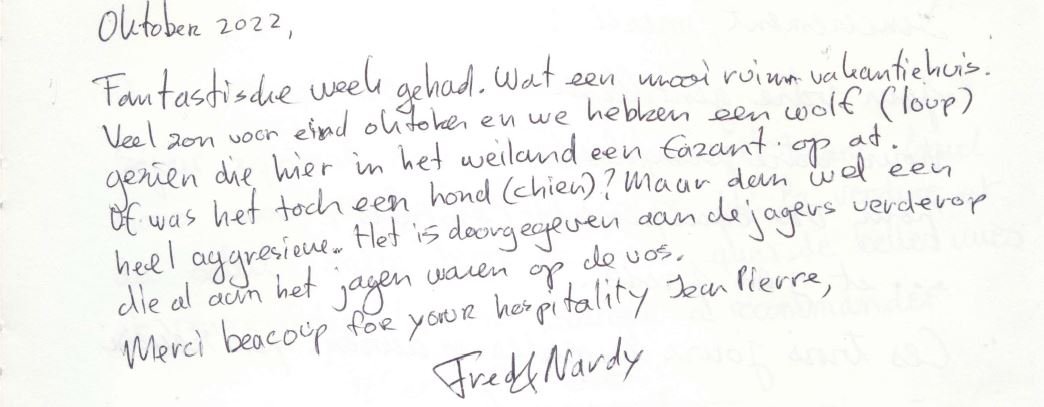 Oktober 2022,
Fantastische week gehad. Wat een mooi ruim vakantiehuis.
Veel zon voor eind oktober en we hebben een wolf (loup)
gezien die hier in het weiland een fazant op at.
Of was het toch een hond (chien)? Maar dan wel een
heel aggresieve. Het is doorgegeven aan de jagers verderop
die al aan het jagen waren op de vos.
Merci beacoup for your hospitality Jean Pierre,
Fred & Nardy